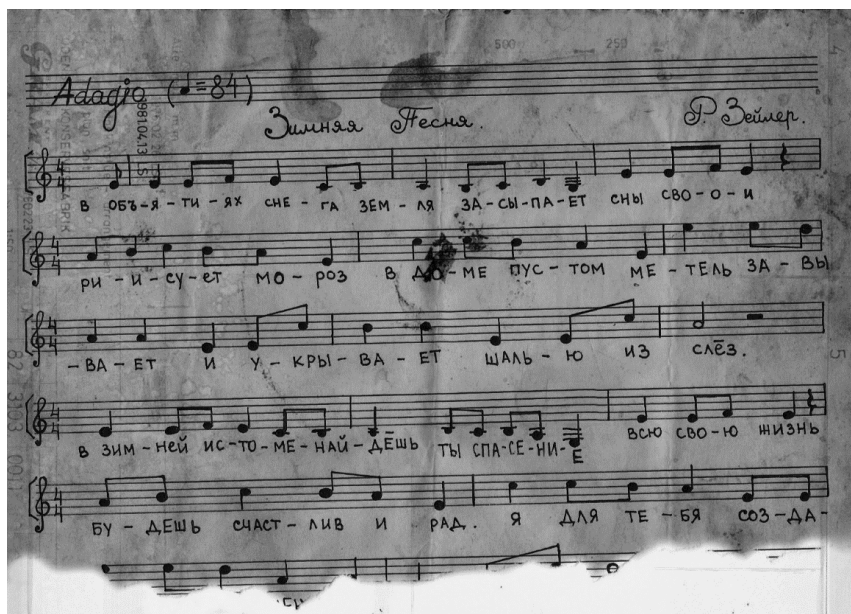 Adagio (♩=84)
Зимняя Песня.
Р. Зейлер.
В ОБЪ-Я-ТИ-ЯХ СНЕ-ГА ЗЕМ-ЛЯ ЗА-СЫ-ПА-ЕТ СНЫ СВО-О-И
РИ-И-СУ-ЕТ МО-РОЗ В ДО-МЕ ПУС-ТОМ МЕ-ТЕЛЬ ЗА-ВЫ
-ВА-ЕТ И У-КРЫ-ВА-ЕТ ШАЛЬ-Ю ИЗ СЛЁЗ.
В ЗИМ-НЕЙ ИС-ТО-МЕ-НАЙ-ДЁШЬ ТЫ СПА-СЕ-НИ-Е ВСЮ СВО-Ю ЖИЗНЬ
БУ-ДЕШЬ СЧАСТ-ЛИВ И РАД. Я ДЛЯ ТЕ-БЯ СОЗ-ДА-